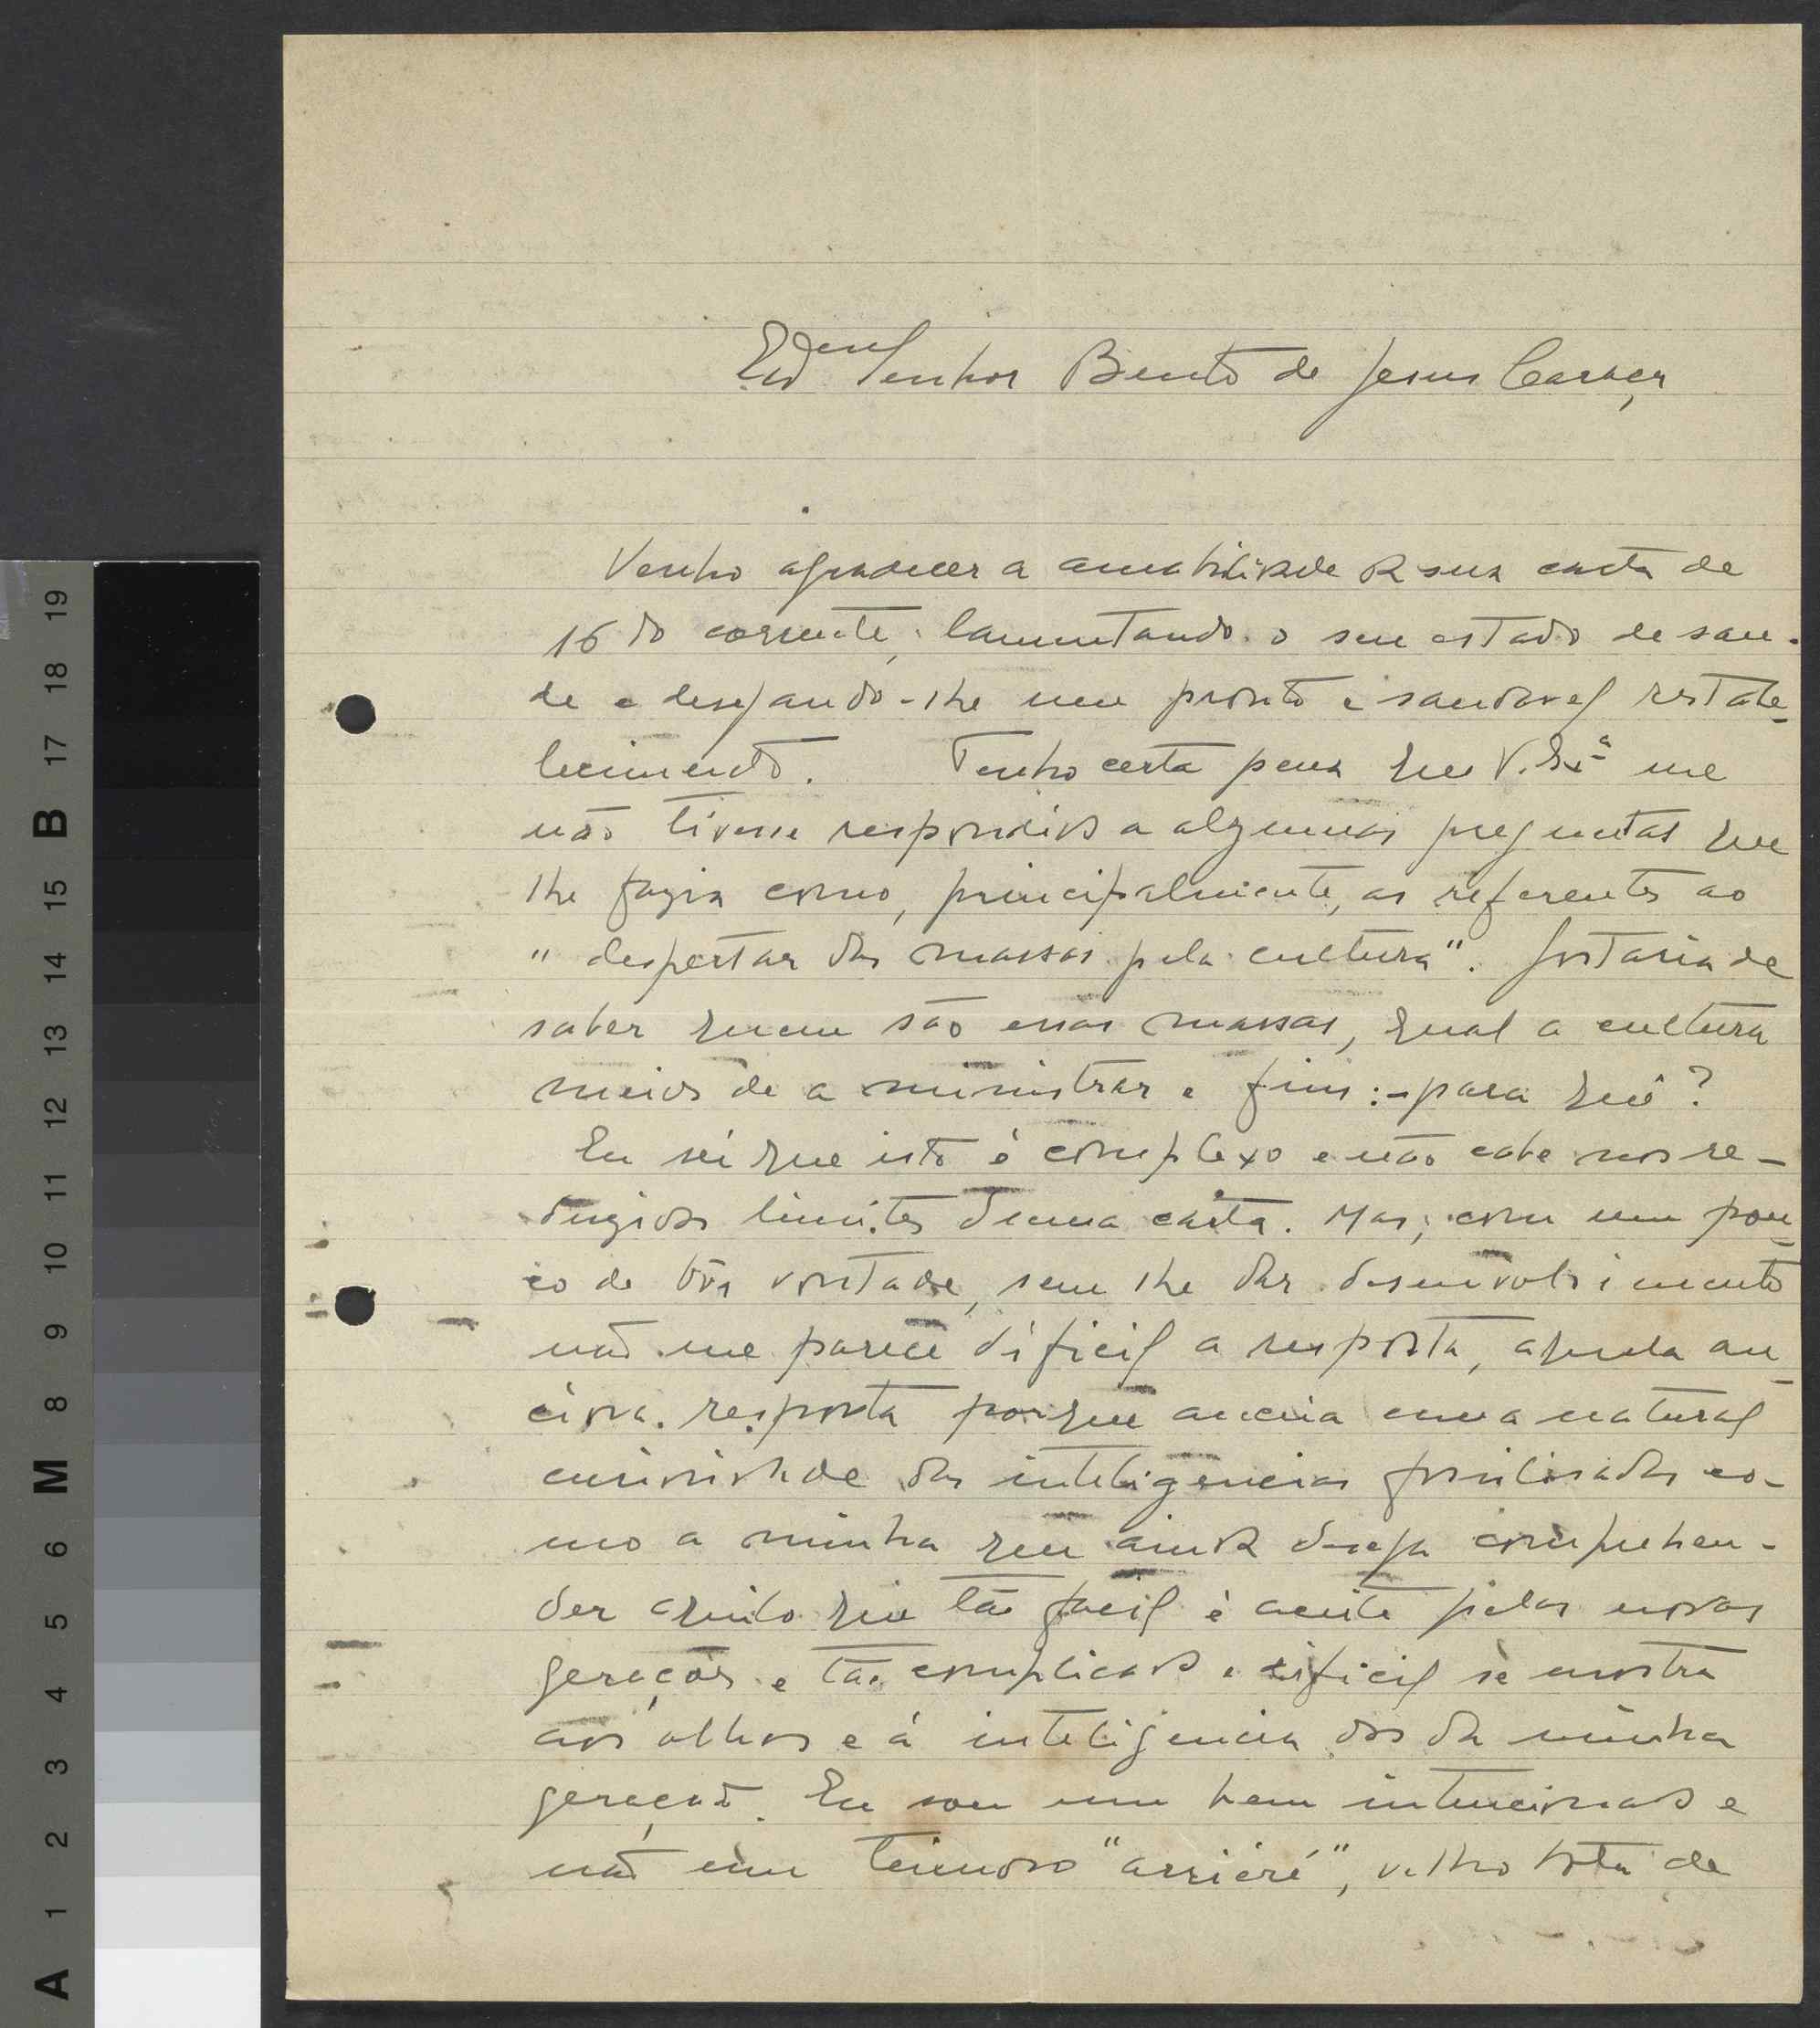 Exmo Senhor Bento de Jesus Caraça
Venho agradecer a amabilidade da sua carta de
16 do corrente, lamentando o seu estado de sau-
de e desejando-lhe um pronto e saudavel restabe-
lecimento. Tenho certa pena que V. Exª me
não tivesse respondido a algumas preguntas que
lhe fazia como, principalmente, as referentes ao
"despertar das massas pela cultura". Gostaria de
saber quem são essas massas, qual a cultura
meios de a ministrar e fins:- para quê?
Eu sei que isto é complexo e não cabe nos re-
duzidos limites duma carta. Mas, com um pou-
co de bôa vontade, sem lhe dar desenvolvimento
não me parece dificil a resposta, aquela an-
ciosa resposta porque anceia uma natural
curiosidade das inteligencias fossilisadas co-
mo a minha que ainda deseja comprehen-
der aquilo que tão facil é aceite pelas novas
gerações e tão complicado e dificil se mostra
aos olhos e á inteligencia dos da minha
geração. Eu sou um bem intencionado e
não um teimoso "arriéré", velho bota de